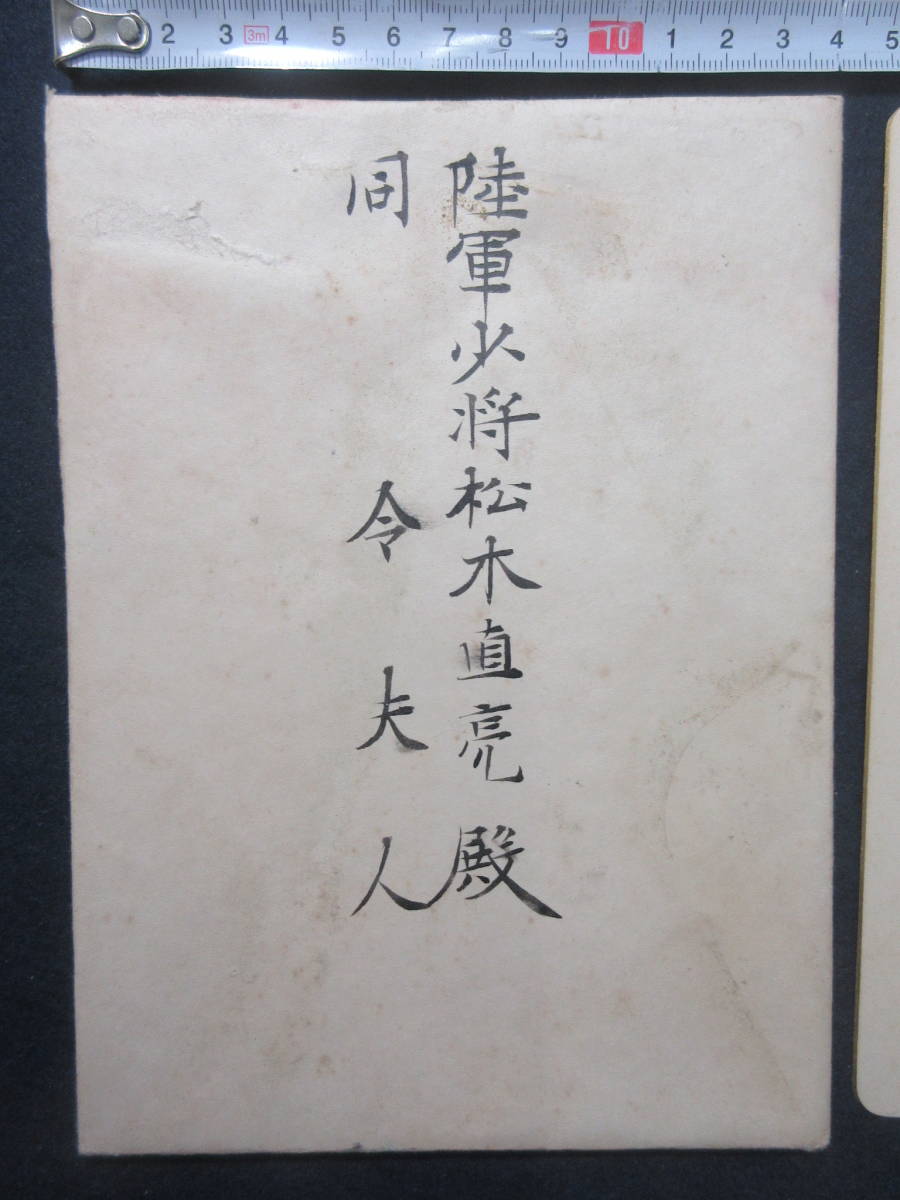 2 3 3m 4 5 6 7 8 9 10 1 2 3 4 5
陸軍少将松木直亮殿
同令夫人